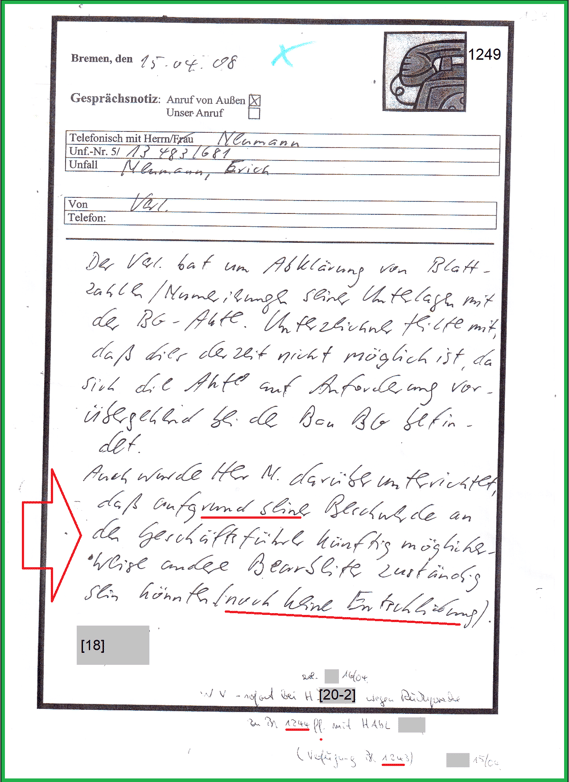 1249
Bremen, den 15.04.08
Gesprächsnotiz: Anruf von Außen ☒
Unser Anruf ☐
Telefonisch mit Herrn/Frau Neumann
Unf.-Nr. 5/ 13 483/681
Unfall Neumann, Erich
Von Verl.
Telefon:
Der Verl. bat um Abklärung von Blatt-
zahlen/Numerierungen seiner Unterlagen mit
der BG-Akte. Unterzeichner teilte mit,
daß dies derzeit nicht möglich ist, da
sich die Akte auf Anforderung vor-
übergehend bei der Bau BG befin-
det.
Auch wurde Herr N. darüber unterrichtet,
daß aufgrund seiner Beschwerde an
den Geschäftsführer künftig möglicher-
weise andere Bearbeiter zuständig
sein könnten (noch keine Entscheidung).
[18]
16/04
WV - sofort bei H [20-2] wegen Rücksprache
zu Bl. 1244 ff. mit
(Verfügung Bl. 1243) 15/04